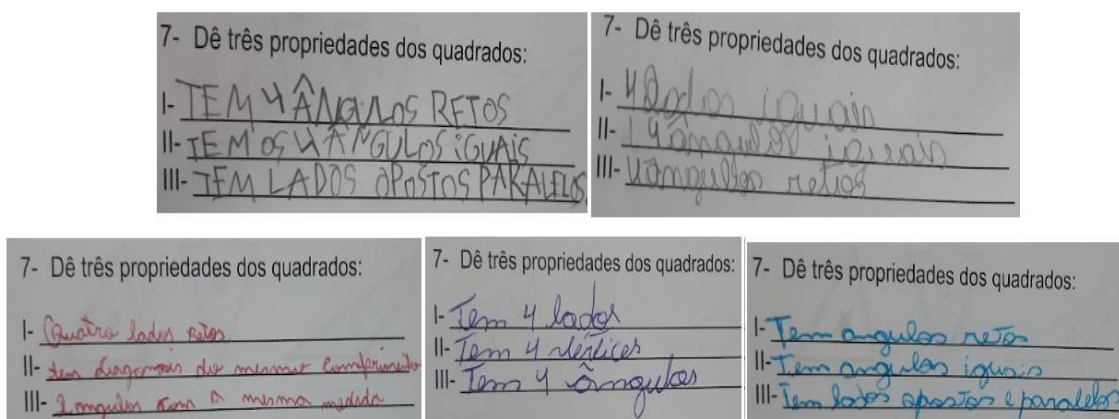 7- Dê três propriedades dos quadrados:
I- TEM 4 ÂNGULOS RETOS
II- TEM OS 4 ÂNGULOS iGUAiS
III- TEM LADOS OPOSTOS PARALELOS
7- Dê três propriedades dos quadrados:
I- 4 lados iguais
II- 4 ângulos iguais
III- 4 ângulos retos
7- Dê três propriedades dos quadrados:
I- Quatro lados retos
II- tem diagonais do mesmo comprimento
III- 2 angulos com a mesma medida
7- Dê três propriedades dos quadrados:
I- Tem 4 lados
II- Tem 4 vértices
III- Tem 4 ângulos
7- Dê três propriedades dos quadrados:
I- Tem angulos retos
II- Tem angulos iguais
III- Tem lados opostos e paralelos